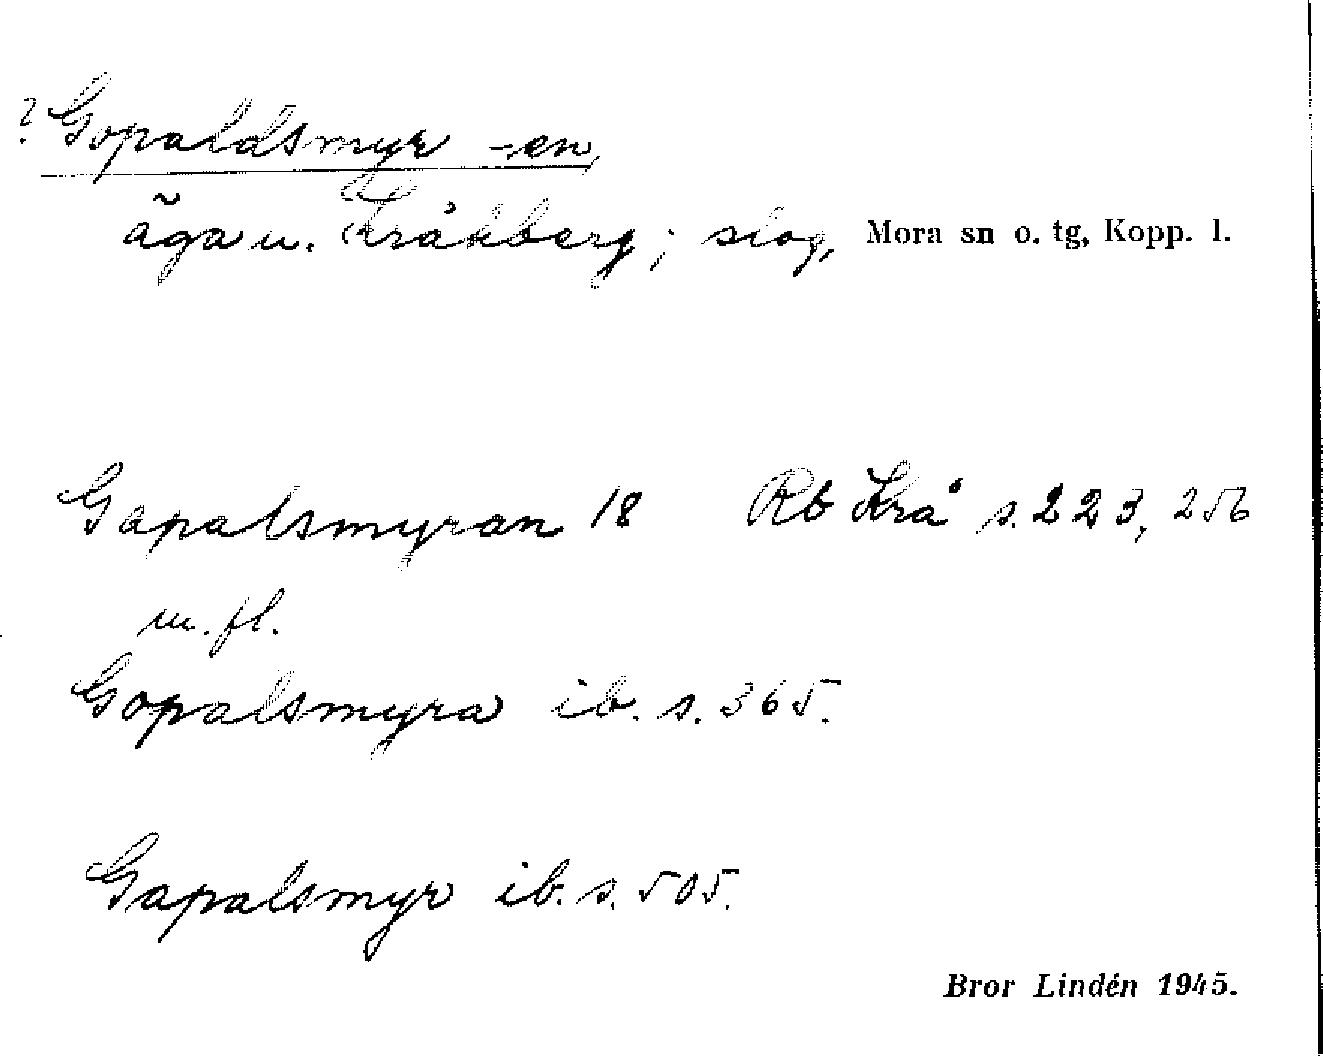 ? Gopaldsmyr -en,
äga u. Kråkberg; slog, Mora sn o. tg, Kopp. l.
Gapalsmyran 18 Rb Krå s. 223, 256
m. fl.
Gopalsmyra ib. s. 365.
Gapalsmyr ib. s. 505.
Bror Lindén 1945.